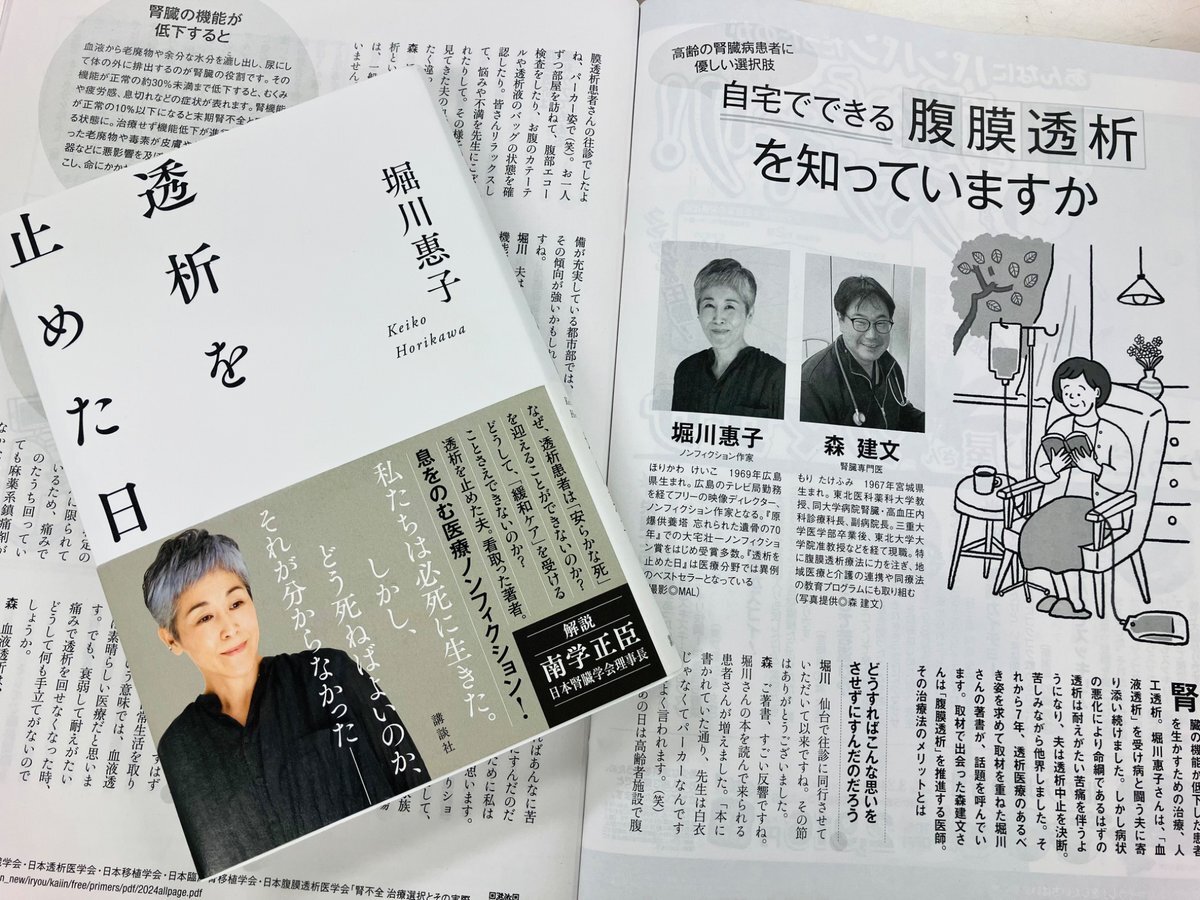 腎臓の機能が
低下すると
血液から老廃物や余分な水分を濾し出し、尿にし
て体の外に排出するのが腎臓の役割です。その
機能が正常の約30%未満まで低下すると、むくみ
や疲労感、息切れなどの症状が表れます。腎機能
が正常の10%以下になると末期腎不全と
る状態に。治療せず機能低下が進
った老廃物や毒素が皮膚や
器などに悪影響を及ぼ
こし、命にかか
膜透析患者さんの往診でしたよ
ね、パーカー姿で(笑)。お一人
ずつ部屋を訪ねて、腹部エコー
検査をしたり、お腹のカテーテ
ルや透析液のバッグの状態を確
認したり。皆さんリラックスし
て、悩みや不満を先生にこぼ
備が充実している都市部では、
その傾向が強いかもしれ
すね。
堀川 夫は
透析を
止めた日
堀川惠子
Keiko
Horikawa
なぜ、透析患者は「安らかな死」
を迎えることができないのか?
どうして、「緩和ケア」を受ける
ことさえできないのか?
透析を止めた夫、看取った著者。
息をのむ医療ノンフィクション!
私たちは必死に生きた。
しかし、
どう死ねばよいのか、
それが分からなかった――
解説
南学正臣
日本腎臓学会理事長
講談社
高齢の腎臓病患者に
優しい選択肢
自宅でできる腹膜透析
を知っていますか
堀川惠子
ノンフィクション作家
ほりかわ けいこ 1969年広島
県生まれ。広島のテレビ局勤務
を経てフリーの映像ディレクター、
ノンフィクション作家となる。『原
爆供養塔 忘れられた遺骨の70
年』で大宅壮一ノンフィクショ
ン賞をはじめ受賞多数。『透析を
止めた日』は医療分野では異例
のベストセラーとなっている
撮影◎MAL)
森 建文
腎臓専門医
もり たけふみ 1967年宮城県
生まれ。東北医科薬科大学教
授、同大学病院腎臓・高血圧内
科診療科長、副病院長。三重大
学医学部卒業後、東北大学大
学院准教授などを経て現職。特
に腹膜透析療法に力を注ぎ、地
域医療と介護の連携や同療法
の教育プログラムにも取り組む
(写真提供◎森 建文)
腎臓の機能が低下した患者
を生かすための治療、人
工透析。堀川惠子さんは、「血
液透析」を受け病と闘う夫に寄
り添い続けました。しかし病状
の悪化により命綱であるはずの
透析は耐えがたい苦痛を伴うよ
うになり、夫は透析中止を決断。
苦しみながら他界しました。そ
れから7年、透析医療のあるべ
き姿を求めて取材を重ねた堀川
さんの著書が、話題を呼んでい
ます。取材で出会った森建文さ
んは「腹膜透析」を推進する医師。
その治療法のメリットとは
どうすればこんな思いを
させずにすんだのだろう
堀川 仙台で往診に同行させて
いただいて以来ですね。その節
はありがとうございました。
森 ご著書、すごい反響ですね。
堀川さんの本を読んで来られる
患者さんが増えました。「本に
書かれていた通り、先生は白衣
じゃなくてパーカーなんです
よく言われます。(笑)
の日は高齢者施設で腹
常生活を取り
い意味では、血液透
は素晴らしい医療だと思いま
す。でも、衰弱して耐えがたい
痛みで透析を回せなくなった時、
どうして何も手立てがないので
しょうか。
学会・日本透析医学会・日本移植学会・日本臨
移植学会・日本腹膜透析医学会「腎不全 治療選択とその実際
n_new/iryou/kaiin/free/primers/pdf/2024allpage.pdf